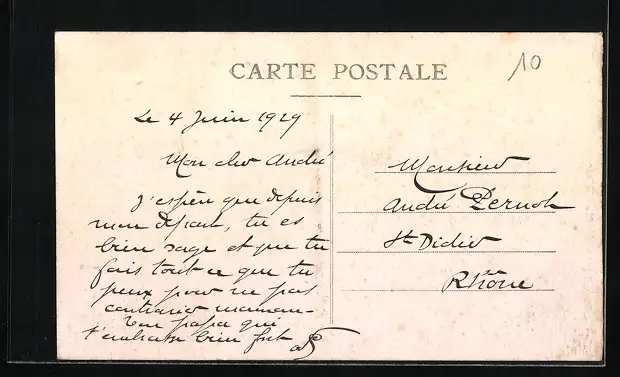 CARTE POSTALE
10
Le 4 Juin 1929
Mon cher André
J'espère que depuis
mon départ, tu es
bien sage et que tu
fais tout ce que tu
peux pour ne pas
contrarier maman
Ton papa qui
t'embrasse bien fort
Monsieur
André Pernot
St Didier
Rhône